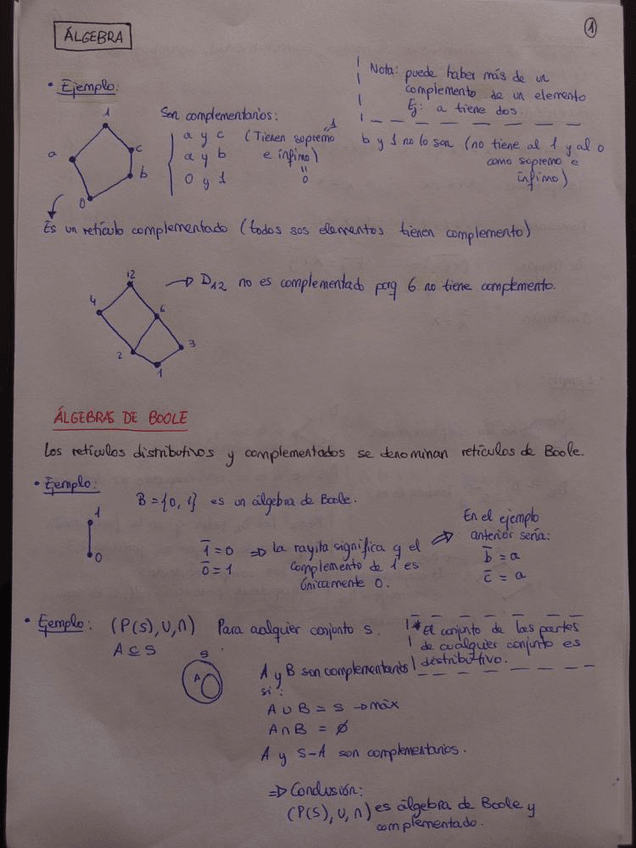 ÁLGEBRA
1
• Ejemplo:
1
a
c
b
0
Son complementarios:
a y c (Tienen supremo "1
a y b e ínfimo)
0 y 1 "0
Nota: puede haber más de un
complemento de un elemento
Ej: a tiene dos.
b y 1 no lo son (no tiene al 1 y al 0
como supremo e
ínfimo)
Es un retículo complementado (todos sus elementos tienen complemento)
12
4
6
2
3
1
→ D12 no es complementado porq 6 no tiene complemento.
ÁLGEBRAS DE BOOLE
Los retículos distributivos y complementados se denominan retículos de Boole.
• Ejemplo:
1
0
B = {0, 1} es un álgebra de Boole.
1̅ = 0
0̅ = 1
⇒ La rayita significa q el
complemento de 1 es
únicamente 0.
⇒ En el ejemplo
anterior sería:
b̅ = a
c̅ = a
• Ejemplo: (P(S), ∪, ∩) Para cualquier conjunto S.
A ⊆ S
S
A
* El conjunto de las partes
de cualquier conjunto es
distributivo.
A y B son complementarios
si:
A ∪ B = S → máx
A ∩ B = ∅
A y S-A son complementarios.
⇒ Conclusión:
(P(S), ∪, ∩) es álgebra de Boole y
complementado.